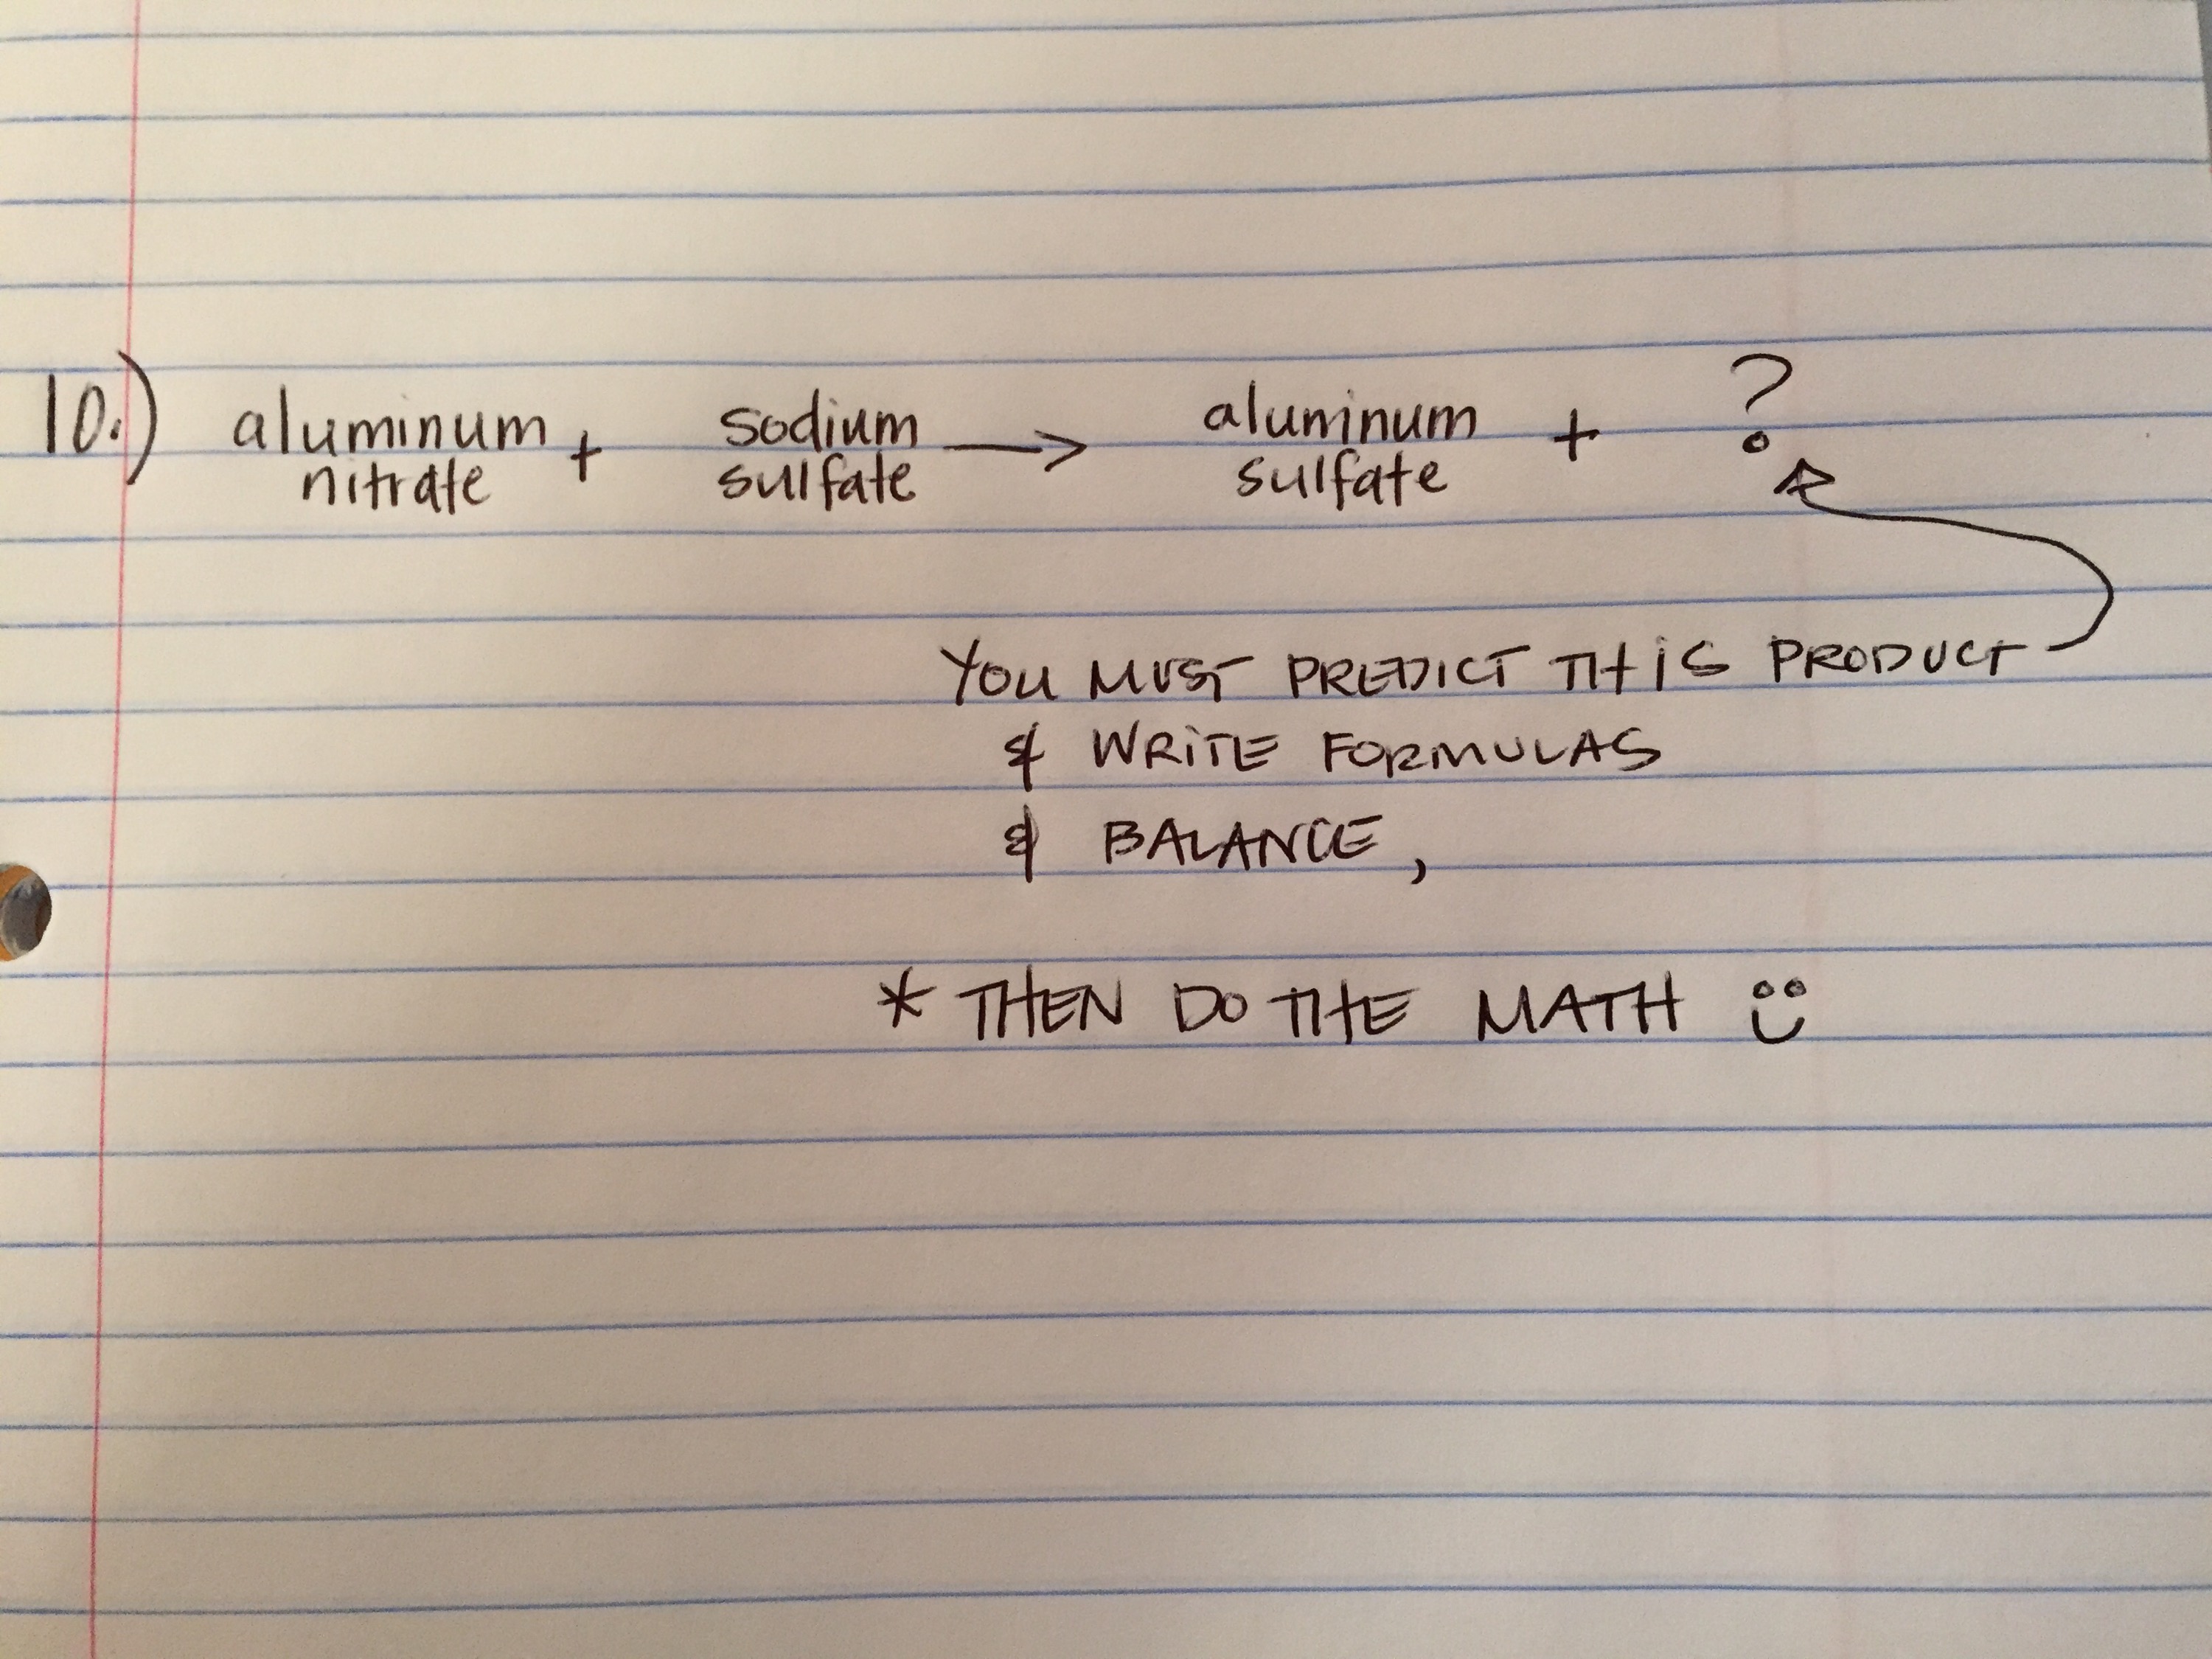 10.) aluminum nitrate + sodium sulfate → aluminum sulfate + ?
YOU MUST PREDICT THIS PRODUCT
& WRITE FORMULAS
& BALANCE,
* THEN DO THE MATH :)